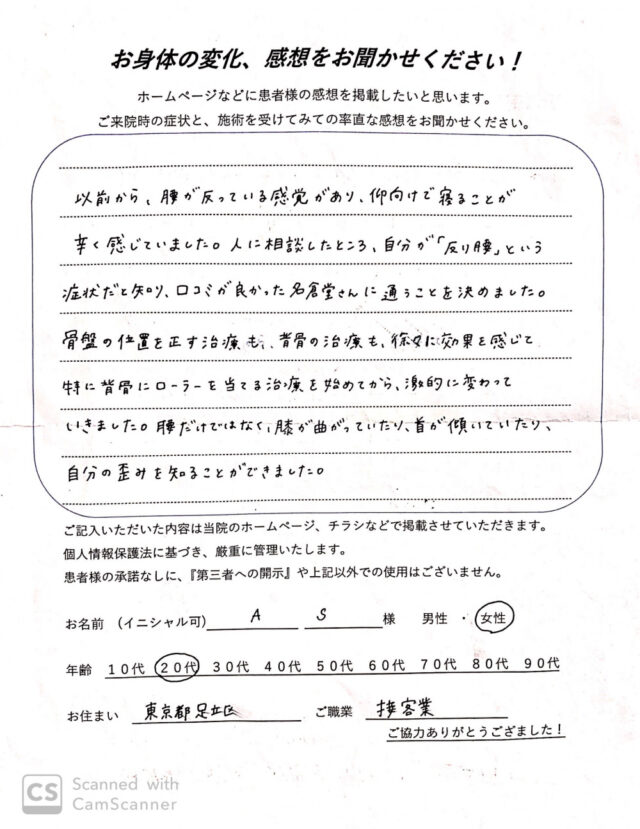 お身体の変化、感想をお聞かせください！
ホームページなどに患者様の感想を掲載したいと思います。
ご来院時の症状と、施術を受けてみての率直な感想をお聞かせください。
以前から、腰が反っている感覚があり、仰向けで寝ることが
辛く感じていました。人に相談したところ、自分が「反り腰」という
症状だと知り、口コミが良かった名倉堂さんに通うことを決めました。
骨盤の位置を正す治療も、背骨の治療も、徐々に効果を感じて
特に背骨にローラーを当てる治療を始めてから、激的に変わって
いきました。腰だけではなく、膝が曲がっていたり、首が傾いていたり、
自分の歪みを知ることができました。
ご記入いただいた内容は当院のホームページ、チラシなどで掲載させていただきます。
個人情報保護法に基づき、厳重に管理いたします。
患者様の承諾なしに、『第三者への開示』や上記以外での使用はございません。
お名前 （イニシャル可） A S 様 男性 ・ 女性
年齢 10代 20代 30代 40代 50代 60代 70代 80代 90代
お住まい 東京都足立区 ご職業 接客業
ご協力ありがとうござました！
CS Scanned with
CamScanner